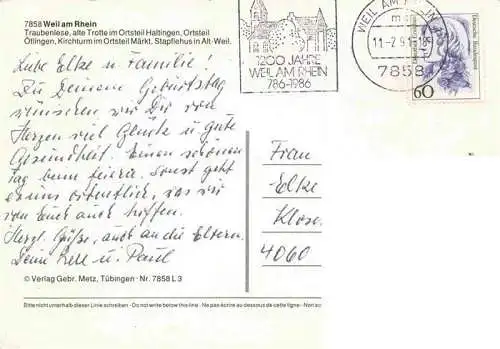 7858 Weil am Rhein
Traubenlese, alte Trotte im Ortsteil Haltingen, Ortsteil
Ötlingen, Kirchturm im Ortsteil Märkt, Stapflehus in Alt-Weil.
1200 JAHRE
WEIL AM RHEIN
786-1986
WEIL AM RHEIN 1
11.-7.91-18
7858
60
Liebe Elke u. Familie!
Zu Deinem Geburtstag
wünschen wir Dir von
Herzen viel Glück u. gute
Gesundheit. Einen schönen
Tag beim feiern. Sonst geht
es uns ordentlich, was wir
von Euch auch hoffen.
Herzl. Grüße, auch an die Eltern.
Deine u. Paul
Frau
Elke
Klose
4060
© Verlag Gebr. Metz, Tübingen · Nr. 7858 L 3
Bitte nicht unterhalb dieser Linie schreiben · Do not write below this line · Ne pas écrire au dessous de cette ligne · Not